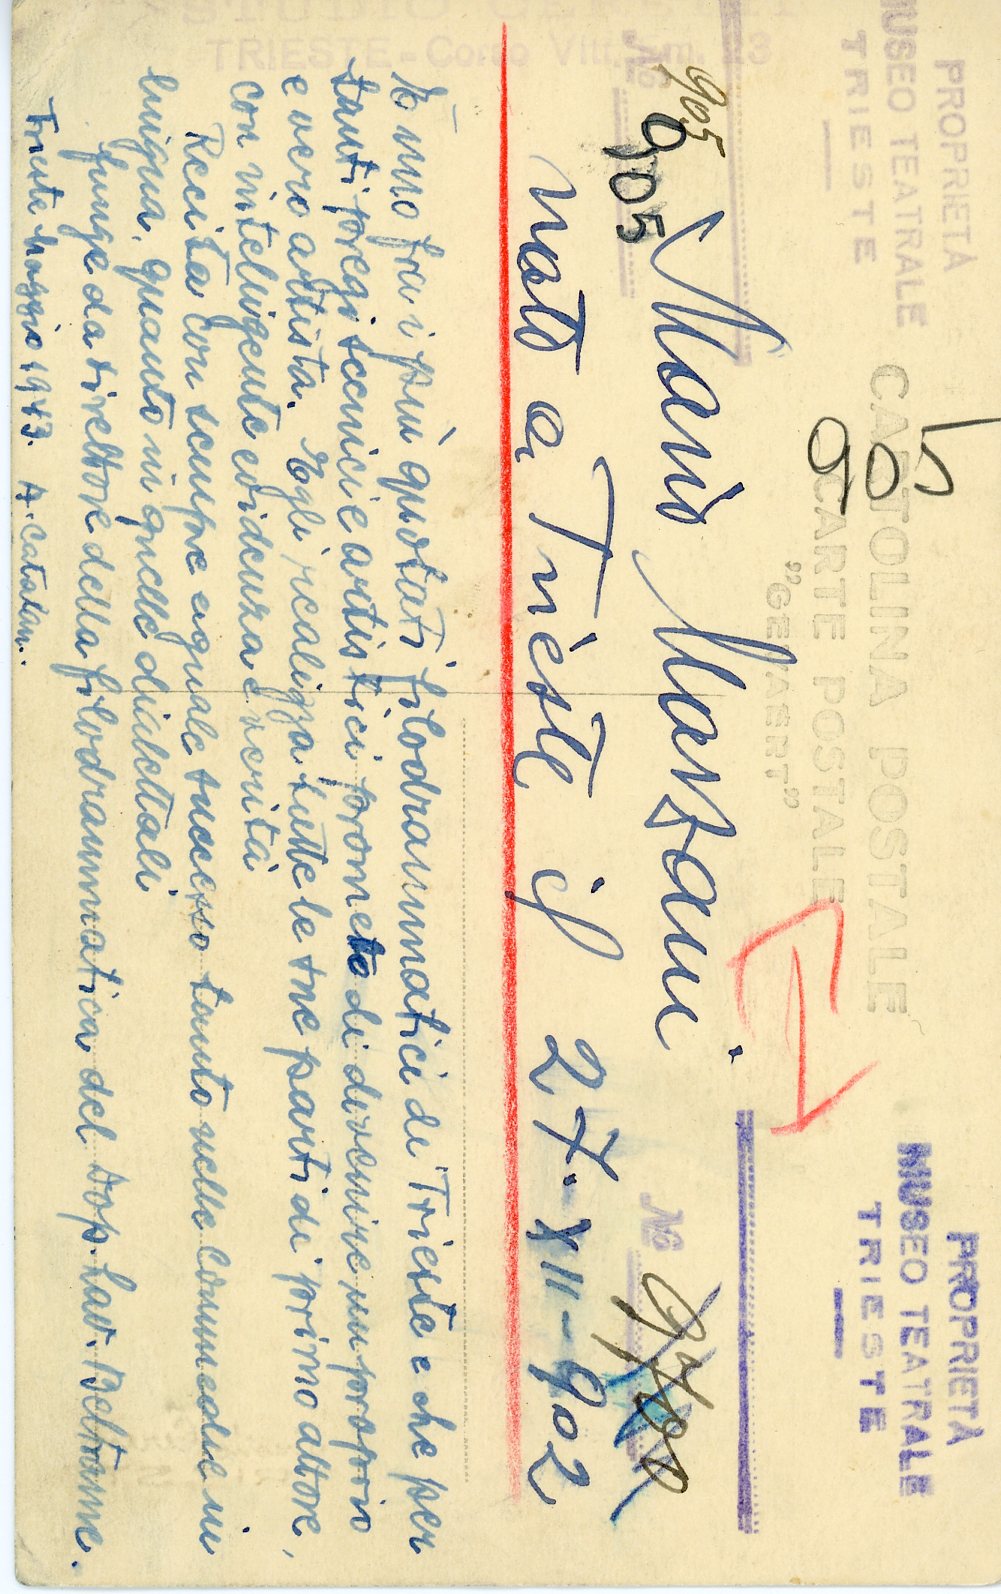 STUDIO
TRIESTE - Corso Vitt. Em. 13
PROPRIETÀ
MUSEO TEATRALE
TRIESTE
PROPRIETÀ
MUSEO TEATRALE
TRIESTE
CARTOLINA POSTALE
CARTE POSTALE
"GEVAERT"
905
I
No
905
905
No
Mario Marzani.
nato a Trieste il 27.XII-902
È uno fra i più quotati filodrammatici di Trieste e che per
tanti pregi tecnici e artistici promette di divenire un proprio
e vero artista. Egli realizza tutte le sue parti di primo attore,
con intelligente evidenza e verità
Recita con sempre eguale successo tanto nelle commedie in
lingua, quanto in quelle dialettali
funge da direttore della filodrammatica del Dop. Lav. Beltrame.
Trieste Maggio 1943. A. Catalan.